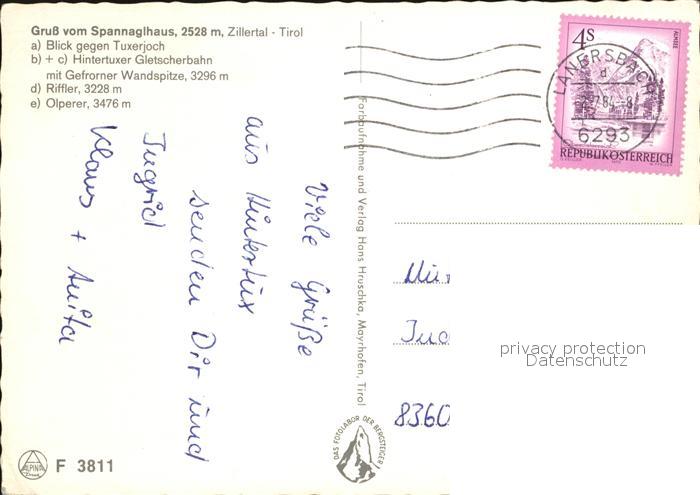 Gruß vom Spannaglhaus, 2528 m, Zillertal - Tirol
a) Blick gegen Tuxerjoch
b) + c) Hintertuxer Gletscherbahn
mit Gefrorner Wandspitze, 3296 m
d) Riffler, 3228 m
e) Olperer, 3476 m
Viele Grüße
aus Hintertux
senden Dir und
Ingrid
Klaus + Anita
Farbaufnahme und Verlag Hans Hruschka, Mayrhofen, Tirol
4S
ALMSEE
REPUBLIK ÖSTERREICH
LANERSBACH
6293
8360
privacy protection
Datenschutz
DAS FOTOLABOR DER BERGSTEIGER
ALPINA
F 3811